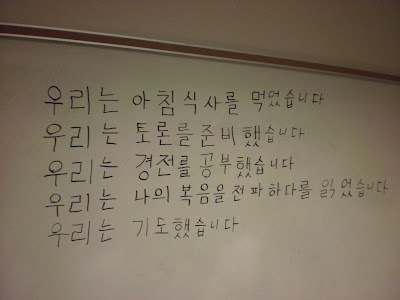 우리는 아침식사를 먹었습니다
우리는 토론를 준비했습니다
우리는 경전를 공부했습니다
우리는 나의 복음을전파하다를 읽었습니다
우리는 기도했습니다